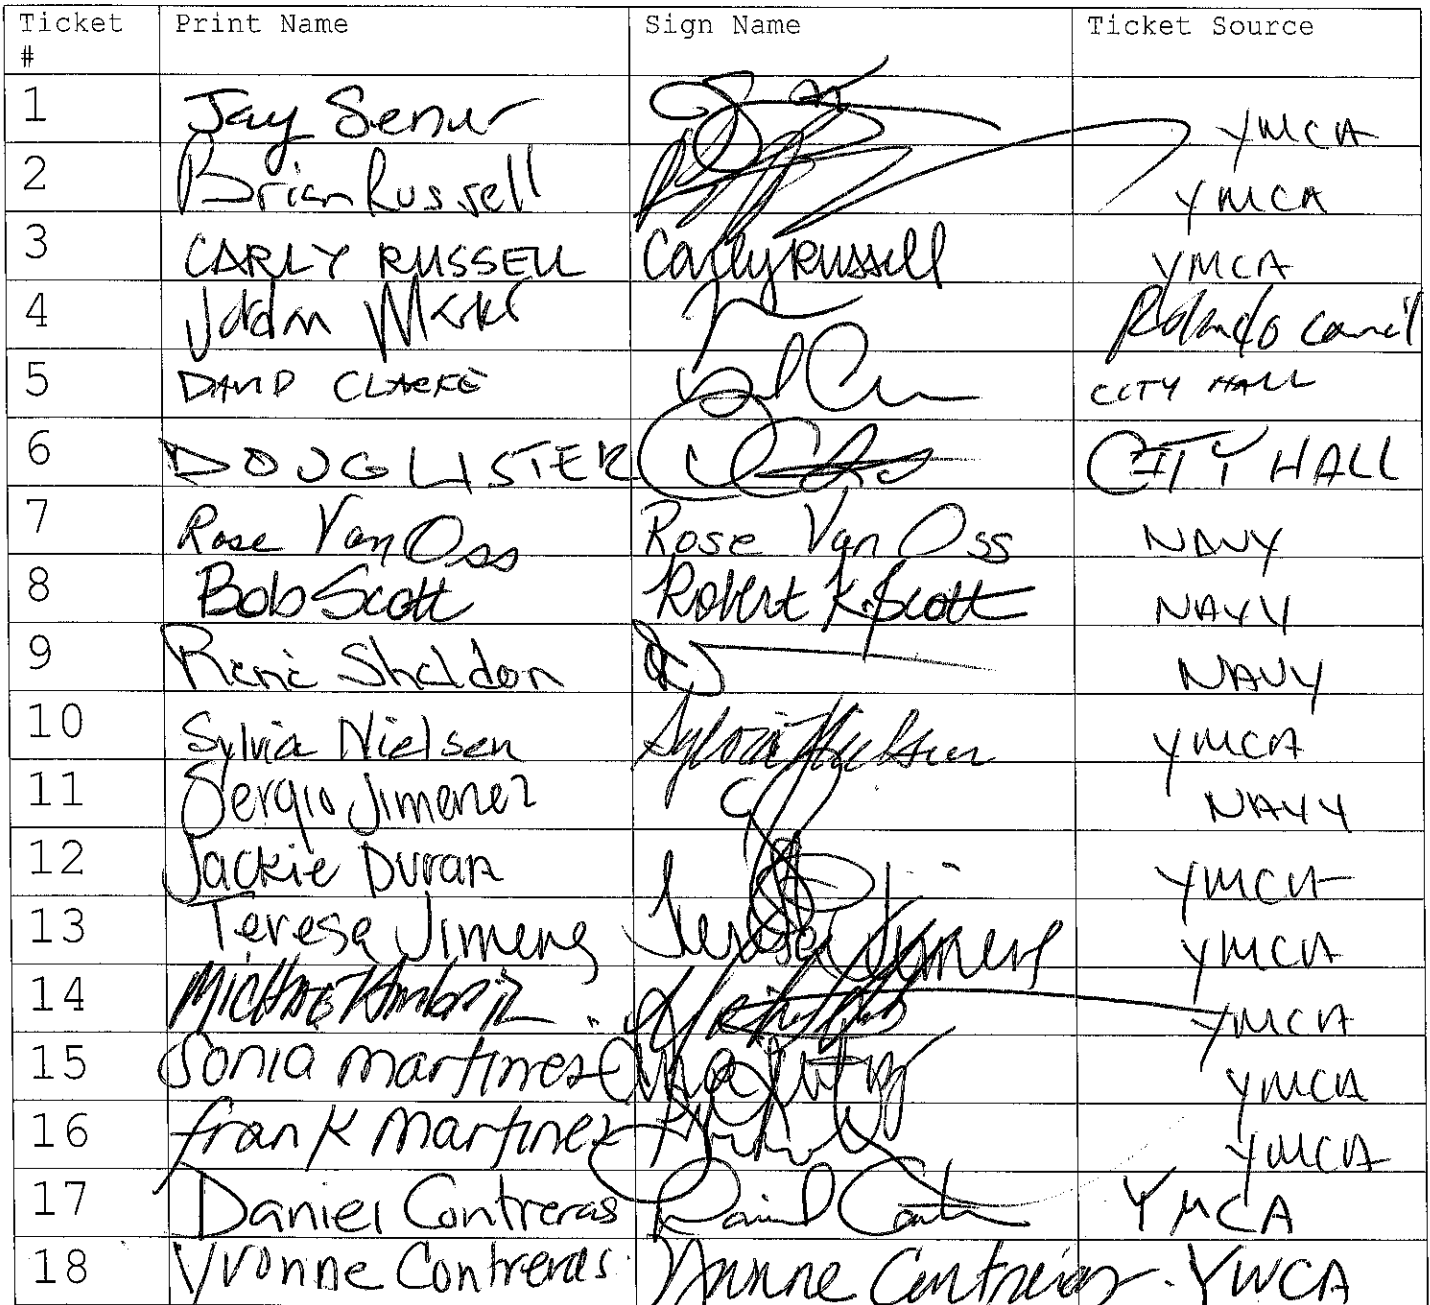 Ticket # Print Name Sign Name Ticket Source
1 Jay Senur YMCA
2 Brian Russell YMCA
3 CARLY RUSSELL Carly Russell YMCA
4 Jordan Rolando Council
5 DAVID CLARKE CITY HALL
6 DOUG LISTER CITY HALL
7 Rose Van Oss Rose Van Oss NAVY
8 Bob Scott Robert K. Scott NAVY
9 Rene Sheldon NAVY
10 Sylvia Nielsen Sylvia Nielsen YMCA
11 Sergio Jimenez NAVY
12 Jackie Duran YMCA
13 Teresa Jimenez Teresa Jimenez YMCA
14 YMCA
15 Sonia martinez YMCA
16 frank Martinez YMCA
17 Daniel Contreras YMCA
18 Yvonne Contreras Yvonne Contreras YMCA